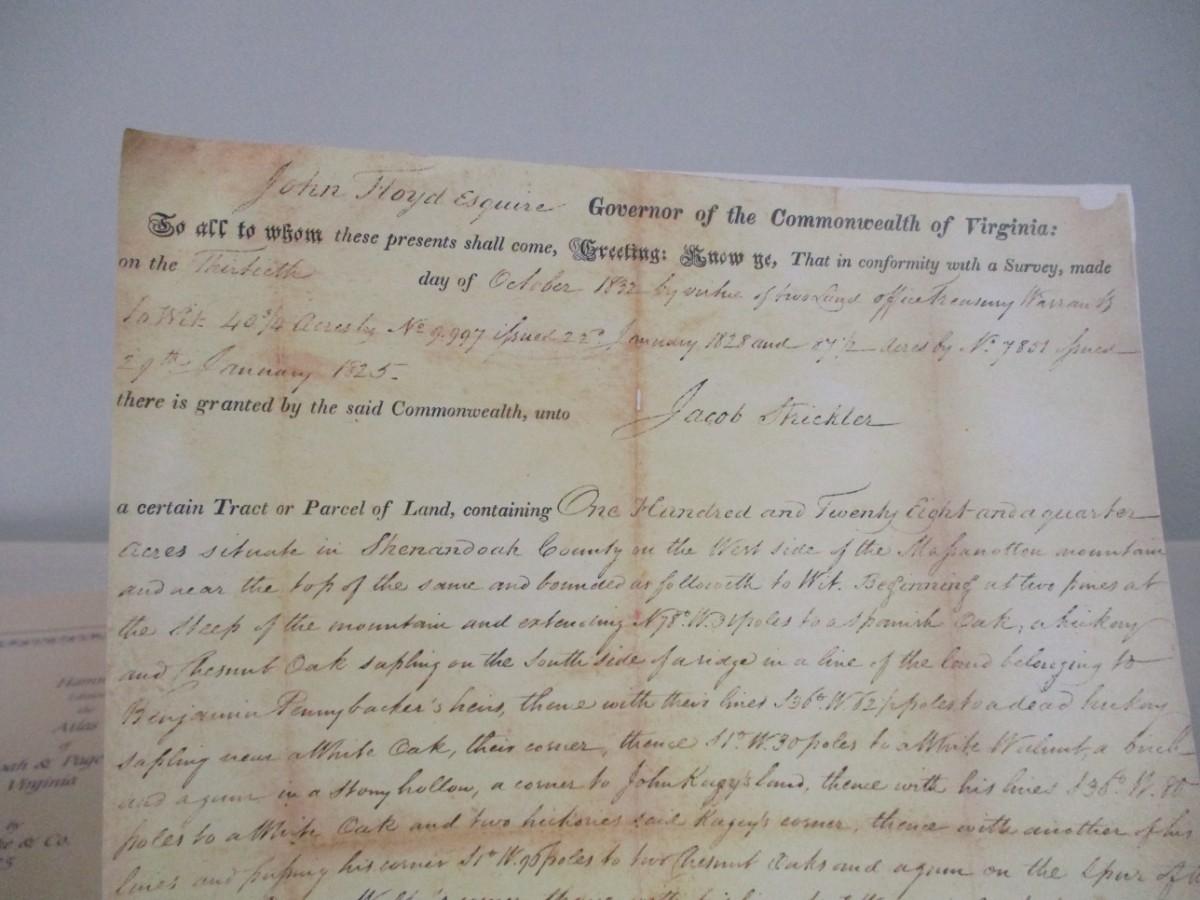 John Floyd Esquire Governor of the Commonwealth of Virginia:
To all to whom these presents shall come, Greeting: Know ye, That in conformity with a Survey, made
on the Thirtieth day of October 1832 by virtue of two Land office Treasury Warrants
to Wit 40 3/4 Acres by No 9.997 issued 22d January 1828 and 87 1/2 acres by No 7851 issued
29th January 1825.
there is granted by the said Commonwealth, unto Jacob Strickler
a certain Tract or Parcel of Land, containing One Hundred and Twenty Eight and a quarter
Acres situate in Shenandoah County on the West side of the Massanotton mountain
and near the top of the same and bounded as followeth to Wit. Beginning at two pines at
the steep of the mountain and extending N78°W. 31 poles to a spanish Oak, a hickory
and Chesnut Oak sapling on the South side of a ridge in a line of the land belonging to
Benjamin Pennybacker's heirs, thence with their lines S36°W 62 poles to a dead hickory
sapling near a White Oak, their corner, thence S1°W. 30 poles to a White Walnut, a birch
and a gum in a stony hollow, a corner to John Kagey's land, thence with his lines S36°W. 80
poles to a White Oak and two hickories said Kagey's corner, thence with another of his
lines and passing his corner S1°W. 90 poles to two Chesnut Oaks and a gum on the Spur of
the
Atlas
of
& Page
Virginia
by
& Co.